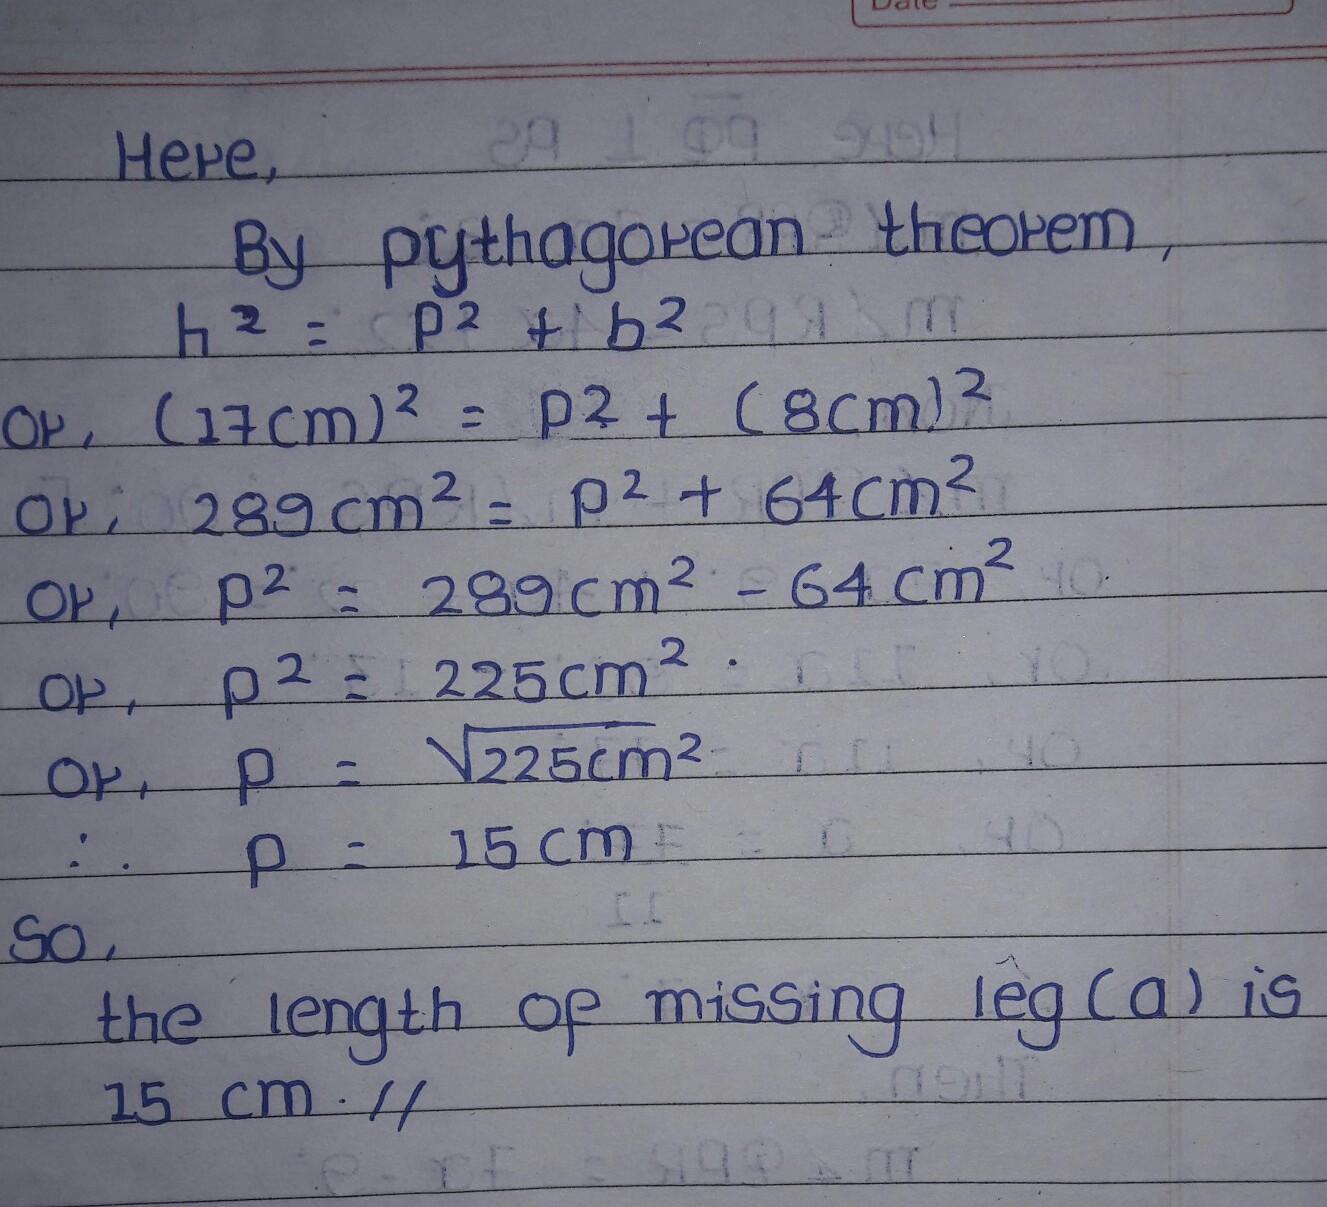 Date
Here,
By pythagorean theorem,
h² = p² + b²
or, (17cm)² = p² + (8cm)²
or, 289cm² = p² + 64cm²
or, p² = 289cm² - 64cm²
or, p² = 225cm²
or, p = √225cm²
∴ p = 15cm
So,
the length of missing leg (a) is
15 cm. //